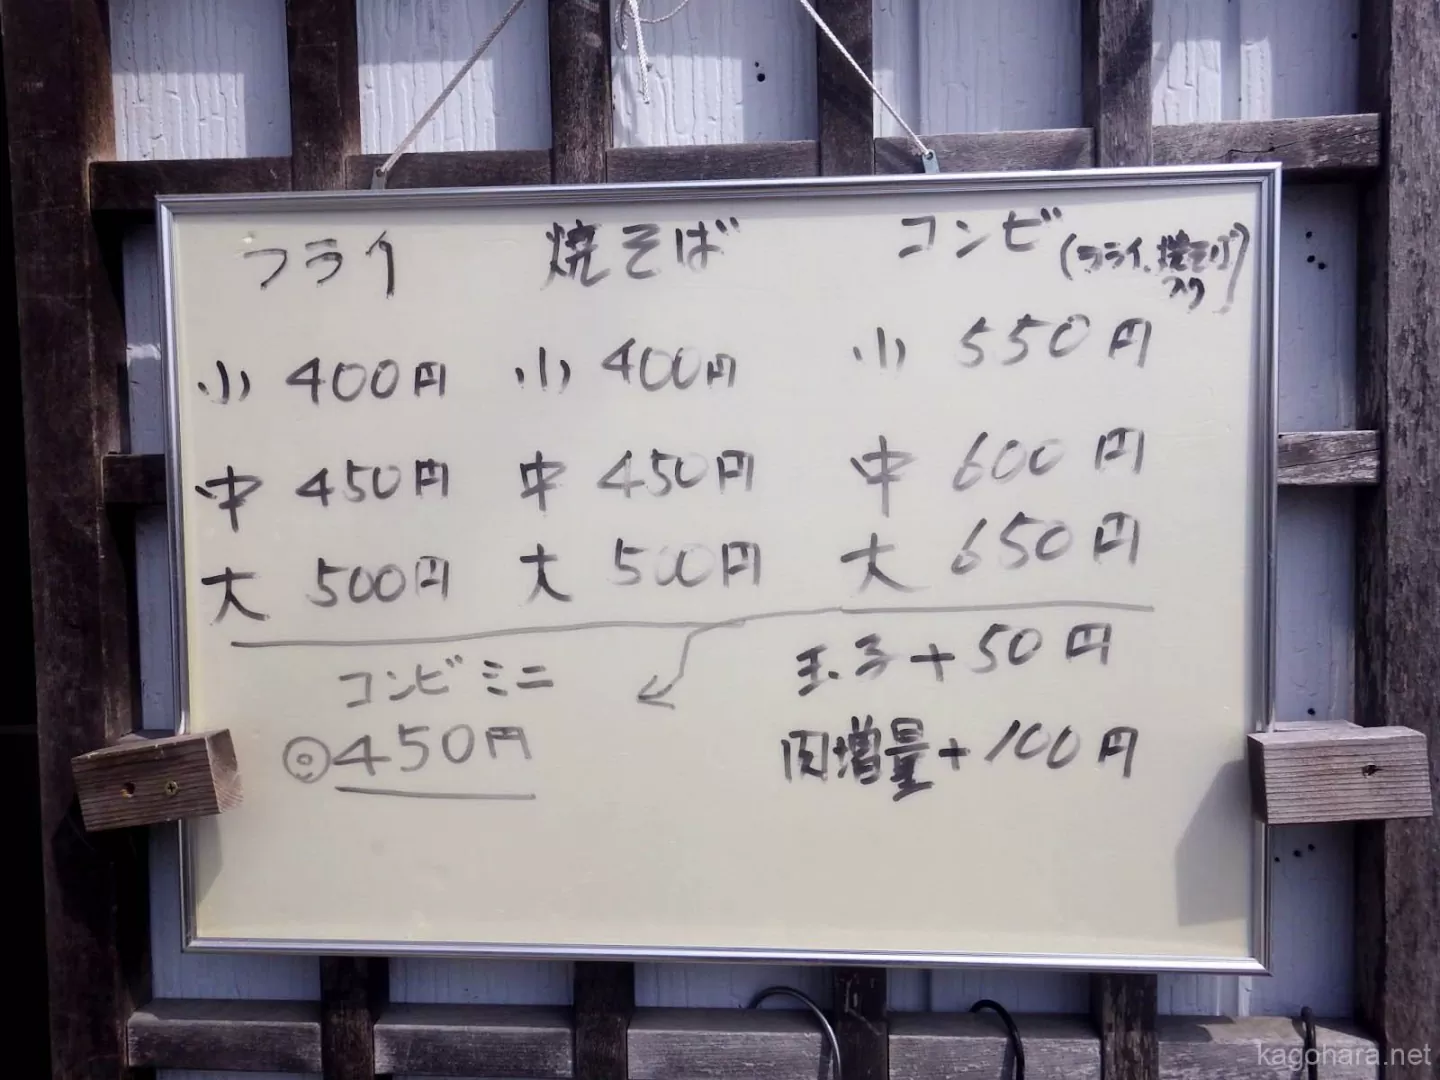 フライ 焼そば コンビ (フライ、焼そば入り)
小 400円 小 400円 小 550円
中 450円 中 450円 中 600円
大 500円 大 500円 大 650円
コンビミニ
◎450円
玉子+50円
肉増量+100円
kagohara.net